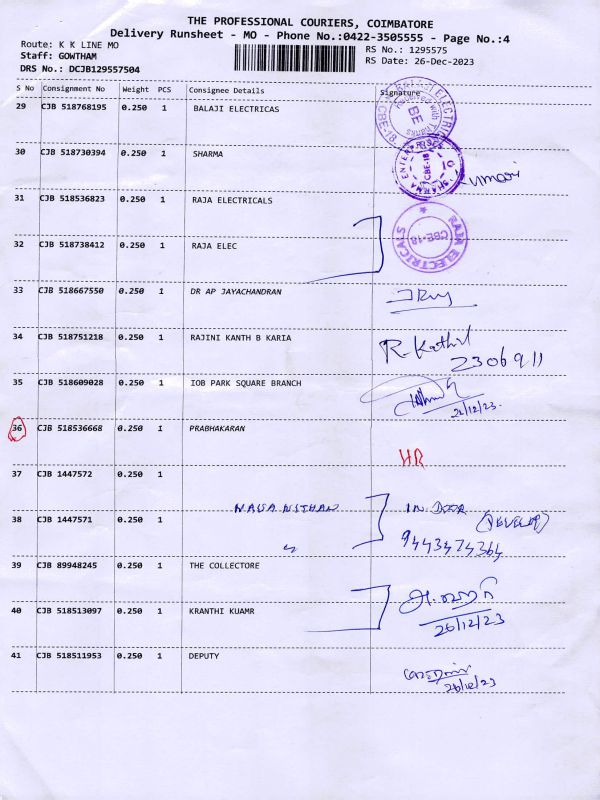 THE PROFESSIONAL COURIERS, COIMBATORE
Delivery Runsheet - MO - Phone No.:0422-3505555 - Page No.:4
Route: K K LINE MO
Staff: GOWTHAM
DRS No.: DCJB129557504
RS No.: 1295575
RS Date: 26-Dec-2023
S No Consignment No Weight PCS Consignee Details Signature
29 CJB 518768195 0.250 1 BALAJI ELECTRICAS
30 CJB 518730394 0.250 1 SHARMA
SHARMA ENTERPRISES CBE-18
31 CJB 518536823 0.250 1 RAJA ELECTRICALS
32 CJB 518738412 0.250 1 RAJA ELEC
RAJA ELECTRICALS CBE-18
33 CJB 518667550 0.250 1 DR AP JAYACHANDRAN
34 CJB 518751218 0.250 1 RAJINI KANTH B KARIA
R. Kathil
2306911
35 CJB 518609028 0.250 1 IOB PARK SQUARE BRANCH
36 CJB 518536668 0.250 1 PRABHAKARAN
HR
37 CJB 1447572 0.250 1
38 CJB 1447571 0.250 1
9443474364
39 CJB 89948245 0.250 1 THE COLLECTORE
40 CJB 518513097 0.250 1 KRANTHI KUAMR
26/12/23
41 CJB 518511953 0.250 1 DEPUTY
26/12/23